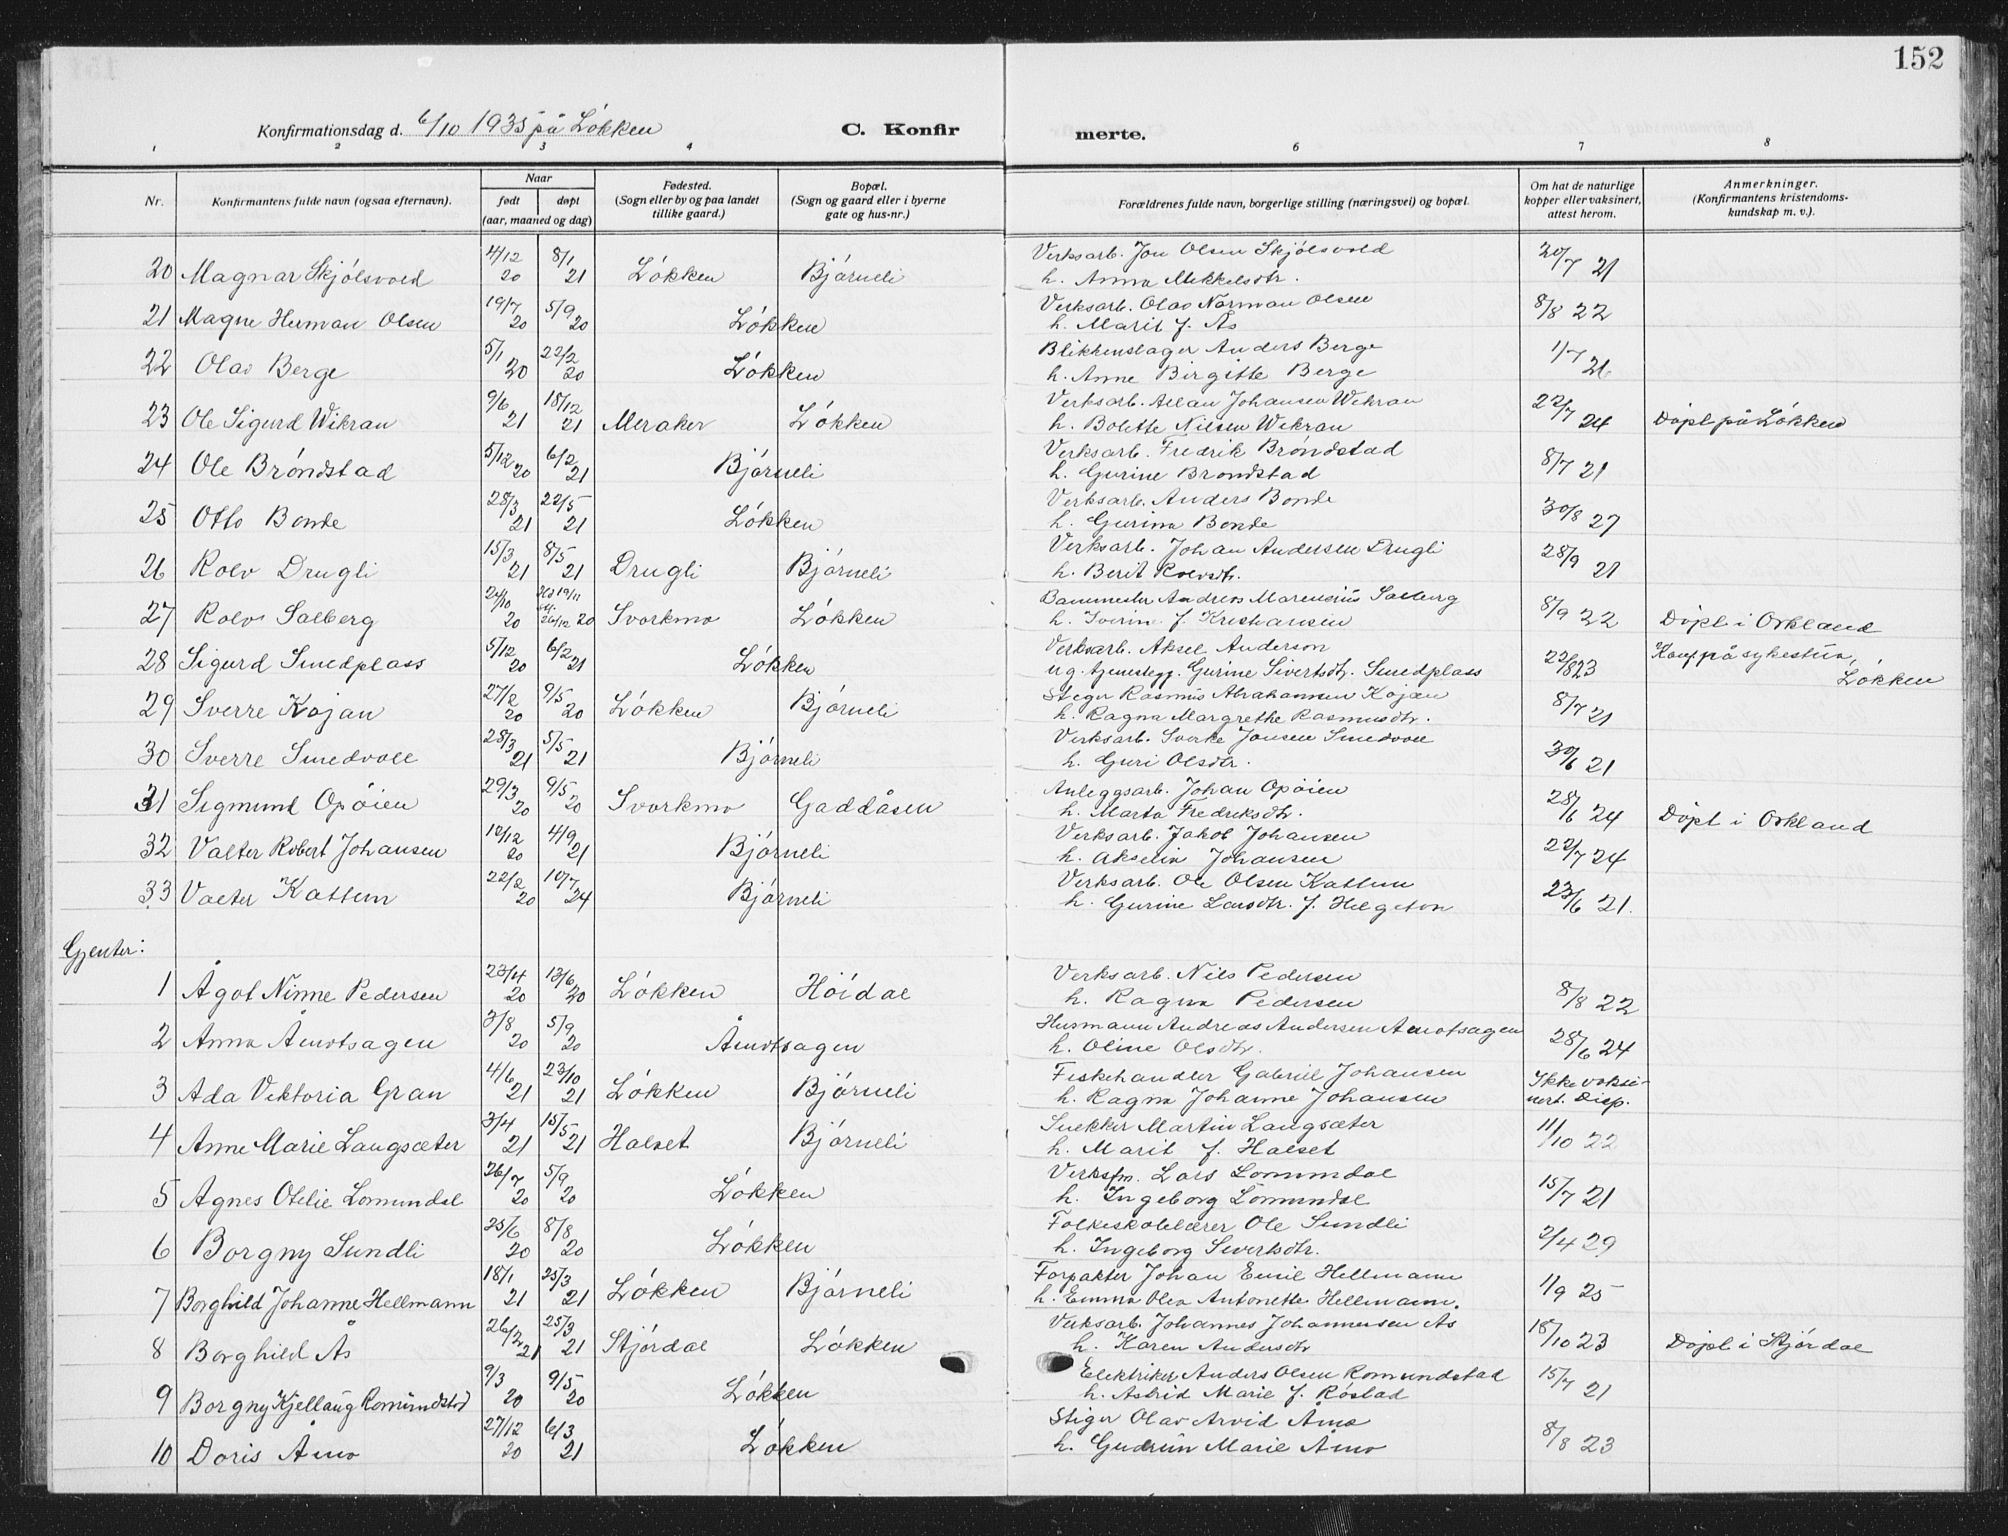 152
Konfirmationsdag d. 6/10 1935 på Løkken C. Konfir merte.
1 2 3 4 6 7 8
Nr. Konfirmantens fulde navn (ogsaa efternavn). Naar født døpt (aar, maaned og dag) Fødested. (Sogn eller by og paa landet tillike gaard.) Bopæl. (Sogn og gaard eller i byerne gate og hus-nr.) Forældrenes fulde navn, borgerlige stilling (næringsvei) og bopæl. Om hat de naturlige kopper eller vaksinert, attest herom. Anmerkninger. (Konfirmantens kristendoms-kundskap m. v.).
20 Magnar Skjølsvold 4/12 20 8/1 21 Løkken Bjørneli Verksarb. Jon Olsen Skjølsvold 20/7 21
h. Anna Mikkelsdtr.
21 Magne Herman Olsen 19/7 20 5/9 20 Løkken Verksarb. Olav Norman Olsen 8/8 22
h. Marit f. Ås
22 Olav Berge 5/1 20 22/2 20 Løkken Blikkenslager Anders Berge 1/7 26
h. Anne Birgitte Berge
23 Ole Sigurd Wikran 9/6 21 18/12 21 Meraker Løkken Verksarb. Allan Johansen Wikran 22/7 24 Døpt på Løkken
h. Bolette Nilsen Wikran
24 Ole Brøndstad 5/12 20 6/2 21 Bjørneli Verksarb. Fredrik Brøndstad 8/7 21
h. Gurine Brøndstad
25 Otto Bonde 28/3 21 22/5 21 Løkken Verksarb. Anders Bonde 30/8 27
h. Gurina Bonde
26 Rolv Drugli 15/3 21 8/5 21 Drugli Bjørneli Verksarb. Johan Andersen Drugli 28/9 21
h. Berit Rolvsdtr.
27 Rolv Salberg 24/10 20 19/11 26/12 20 Svorkmo Løkken Andreas Marensius Salberg 8/9 22 Døpt i Orkland
h. f. Kristiansen
28 Sigurd Smedplass 5/12 20 6/2 21 Løkken Verksarb. Aksel Anderson 22/8 23 Konf på sykestua, Løkken
ug. tjenestegj. Gurine Sivertsdtr. Smedplass
29 Sverre Kojan 27/2 20 9/5 20 Løkken Bjørneli Stiger Rasmus Abrahamsen Kojan 8/7 21
h. Ragna Margrethe Rasmusdtr.
30 Sverre Smedvoll 28/3 21 5/5 21 Bjørneli Verksarb. Sverke Jonsen Smedvoll 30/6 21
h. Guri Olsdtr.
31 Sigmund Opøien 29/3 20 9/5 20 Svorkmo Gaddåsen Anleggsarb. Johan Opøien 28/6 24 Døpt i Orkland
h. Marta Fredriksdtr.
32 Valter Robert Johansen 12/12 20 4/9 21 Bjørneli Verksarb. Jakob Johansen 22/7 24
h. Akselia Johansen
33 Valter Kattem 22/2 20 10/7 24 Bjørneli Verksarb. Ole Olsen Kattem 23/6 21.
h. Gurine Larsdtr. f. Helgeton
Gjenter:
1 Ågot Ninne Pedersen 23/4 20 13/6 20 Løkken Høidal Verksarb. Nils Pedersen 8/8 22
h. Ragna Pedersen
2 Anna Åmotsagen 3/8 20 5/9 20 Åmotsagen Husmann Andreas Andersen Åmotsagen 28/6 24
h. Oline Olsdtr.
3 Ada Viktoria Gran 4/6 21 23/10 21 Løkken Bjørneli Fiskehandler Gabriel Johansen Ikke vaksinert. Disp.
h. Ragna Johanne Johansen
4 Anne Marie Langsæter 3/4 21 15/5 21 Halset Bjørneli Snekker Martin Langsæter 11/10 22
h. Marit f. Halset
5 Agnes Otelie Lomundal 26/7 20 5/9 20 Løkken Verksfm. Lars Lomundal 15/7 21
h. Ingeborg Lomundal
6 Borgny Sundli 25/6 20 8/8 20 Løkken Folkeskolelærer Ole Sundli 2/4 29
h. Ingeborg Sivertsdtr.
7 Borghild Johanne Hellmann 18/1 21 25/3 21 Løkken Bjørneli Forpakter Johan Emil Hellmann 1/9 25
h. Emma Olea Antonette Hellmann.
8 Borghild Ås 26/2 21 25/3 21 Stjørdal Løkken Verksarb. Johannes Johannesen Ås 18/10 23 Døpt i Stjørdal
h. Karen Andersdtr
9 Borgny Kjellaug Romundstad 9/3 20 9/5 20 Løkken Elektriker Anders Olsen Romundstad 15/7 21
h. Astrid Marie f. Røstad
10 Doris Åmo 27/12 20 6/3 21 Løkken Stiger Olav Arvid Åmo 8/8 23
h. Gudrun Marie Åmo